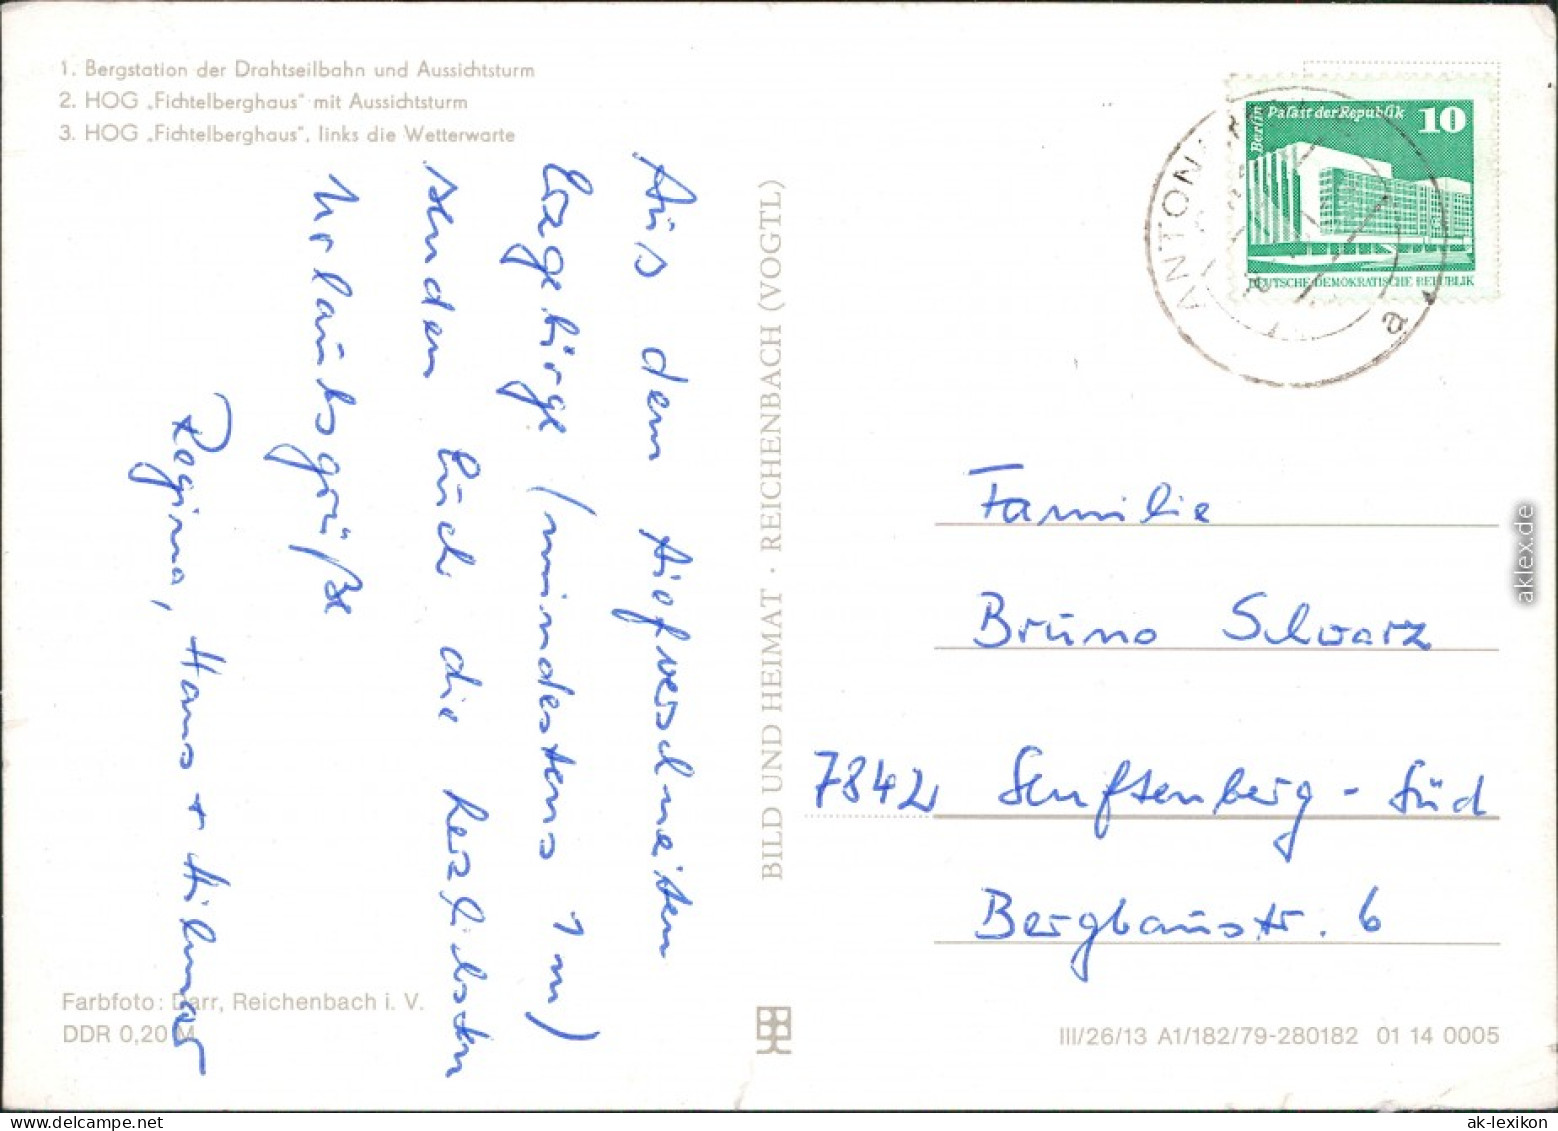 1. Bergstation der Drahtseilbahn und Aussichtsturm
2. HOG „Fichtelberghaus" mit Aussichtsturm
3. HOG „Fichtelberghaus", links die Wetterwarte
Aus dem tiefverschneiten
Erzgebirge (mindestens 1 m)
senden Euch die herzlichsten
Urlaubsgrüße
Regina, Hans + Hilmar
Farbfoto: Darr, Reichenbach i. V.
DDR 0,20 M
BILD UND HEIMAT · REICHENBACH (VOGTL)
Berlin
Palast der Republik 10
DEUTSCHE DEMOKRATISCHE REPUBLIK
a
Familie
Bruno Schwarz
7842 Senftenberg - Süd
Bergbaustr. 6
III/26/13 A1/182/79-280182 01 14 0005
aklex.de
ak-lexikon